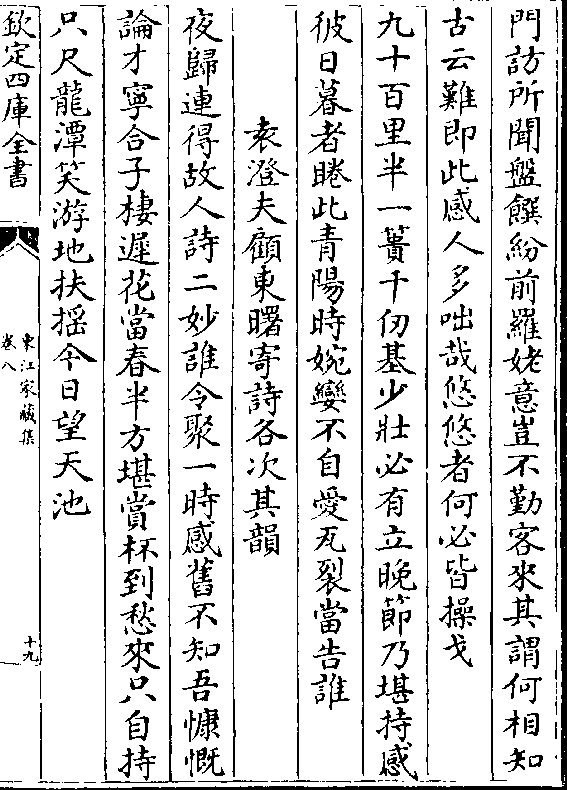 門訪所聞盤饌紛前羅姥意豈不勤客來其謂何相知
古云難即此感人多咄哉悠悠者何必皆操戈
九十百里半一簣千仞基少壯必有立晚節乃堪持感
彼日暮者睠此青陽時婉孌不自愛瓦裂當告誰
袁澄夫顧東曙寄詩各次其韻
夜歸連得故人詩二妙誰令聚一時感舊不知吾慷慨
論才寧合子棲遲花當春半方堪賞杯到愁來只自持
只尺龍潭笑游地扶摇今日望天池
欽定四庫全書
東江家藏集
卷八
十九